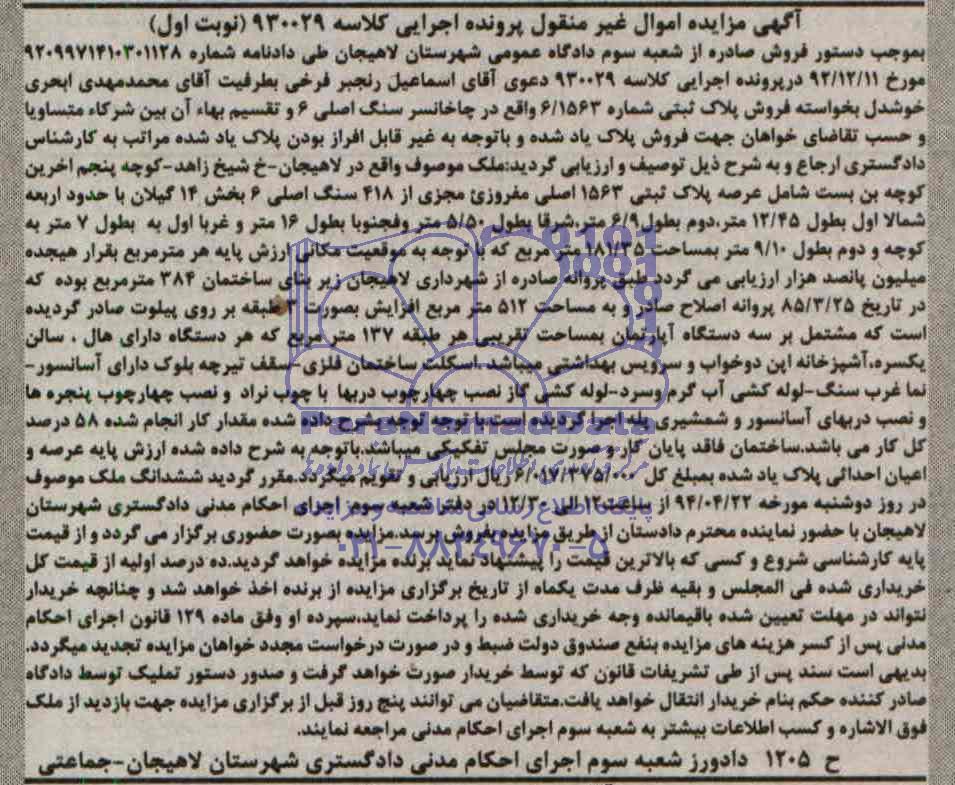 آگهی مزایده اموال غیر منقول پرونده اجرایی کلاسه ۹۳۰۰۲۹ (نوبت اول)
بموجب دستور فروش صادره از شعبه سوم دادگاه عمومی شهرستان لاهیجان طی دادنامه شماره ۹۲۰۹۹۷۱۴۱۰۳۰۱۱۲۸
مورخ ۹۲/۱۲/۱۱ درپرونده اجرایی کلاسه ۹۳۰۰۲۹ دعوی آقای اسماعیل رنجبر فرخی بطرفیت آقای محمدمهدی ابحری
خوشدل بخواسته فروش پلاک ثبتی شماره ۶/۱۵۶۳ واقع در چاخانسر سنگ اصلی ۶ و تقسیم بهاء آن بین شرکاء متساویا
و حسب تقاضای خواهان جهت فروش پلاک یاد شده و باتوجه به غیر قابل افراز بودن پلاک یاد شده مراتب به کارشناس
دادگستری ارجاع و به شرح ذیل توصیف و ارزیابی گردید:ملک موصوف واقع در لاهیجان-خ شیخ زاهد-کوچه پنجم اخرین
کوچه بن بست شامل عرصه پلاک ثبتی ۱۵۶۳ اصلی مفروزئ مجزی از ۴۱۸ سنگ اصلی ۶ بخش ۱۴ گیلان با حدود اربعه
شمالا اول بطول ۱۲/۴۵ متر،دوم بطول ۶/۹ متر،شرقا بطول ۵/۵۰ متر وفجنوبا بطول ۱۶ متر و غربا اول به بطول ۷ متر به
کوچه و دوم بطول ۹/۱۰ متر بمساحت ۱۸۱/۳۵ متر مربع که با توجه به موقعیت مکانی ارزش پایه هر مترمربع بقرار هیجده
میلیون پانصد هزار ارزیابی می گردد.طبق پروانه صادره از شهرداری لاهیجان زیر بنای ساختمان ۳۸۴ مترمربع بوده که
در تاریخ ۸۵/۳/۲۵ پروانه اصلاح صادر و به مساحت ۵۱۲ متر مربع افزایش بصورت طبقه بر روی پیلوت صادر گردیده
است که مشتمل بر سه دستگاه آپارتمان بمساحت تقریبی هر طبقه ۱۳۷ متر مربع که هر دستگاه دارای هال ، سالن
یکسره،آشپزخانه اپن دوخواب و سرویس بهداشتی میباشد.اسکلت ساختمان فلزی-سقف تیرچه بلوک دارای آسانسور-
نما غرب سنگ-لوله کشی آب گرم وسرد-لوله کشی گاز نصب چهارچوب دربها با چوب نراد و نصب چهارچوب پنجره ها
و نصب دربهای آسانسور و شمشیری پله اجرا گردیده است.با توجه توجه بشرح داده شده مقدار کار انجام شده ۵۸ درصد
کل کار می باشد.ساختمان فاقد پایان کار و صورت مجلس تفکیکی میباشد.باتوجه به شرح داده شده ارزش پایه عرصه و
اعیان احداثی پلاک یاد شده بمبلغ کل ریال ارزیابی و تقویم میگردد.مقرر گردید ششدانگ ملک موصوف
در روز دوشنبه مورخه ۹۴/۰۴/۲۲ از ساعت ۱۲ الی ۱۲/۳۰ در دفتر شعبه سوم اجرای احکام مدنی دادگستری شهرستان
لاهیجان با حضور نماینده محترم دادستان از طریق مزایده بفروش برسد.مزایده بصورت حضوری برگزار می گردد و از قیمت
پایه کارشناسی شروع و کسی که بالاترین قیمت را پیشنهاد نماید برنده مزایده خواهد گردید.ده درصد اولیه از قیمت کل
خریداری شده فی المجلس و بقیه ظرف مدت یکماه از تاریخ برگزاری مزایده از برنده اخذ خواهد شد و چنانچه خریدار
نتواند در مهلت تعیین شده باقیمانده وجه خریداری شده را پرداخت نماید،سپرده او وفق ماده ۱۲۹ قانون اجرای احکام
مدنی پس از کسر هزینه های مزایده بنفع صندوق دولت ضبط و در صورت درخواست مجدد خواهان مزایده تجدید میگردد.
بدیهی است سند پس از طی تشریفات قانون که توسط خریدار صورت خواهد گرفت و صدور دستور تملیک توسط دادگاه
صادر کننده حکم بنام خریدار انتقال خواهد یافت.متقاضیان می توانند پنج روز قبل از برگزاری مزایده جهت بازدید از ملک
فوق الاشاره و کسب اطلاعات بیشتر به شعبه سوم اجرای احکام مدنی مراجعه نمایند.
ح ۱۲۰۵ دادورز شعبه سوم اجرای احکام مدنی دادگستری شهرستان لاهیجان-جماعتی
۰۲۱-۸۸۳۴۹۶۷۰-۵